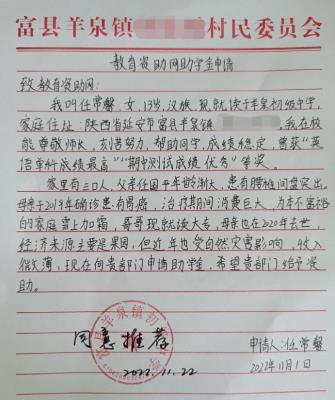 富县羊泉镇 村民委员会
教育资助网助学金申请
致教育资助网:
我叫任常馨,女,13岁,汉族,现就读于羊泉初级中学,
家庭住址:陕西省延安市富县羊泉镇 。我在校
能尊敬师长,刻苦努力,帮助同学,成绩稳定,曾获“英
语单科成绩最高”“期中测试成绩优秀”等奖。
家里有三口人,父亲任国千年龄渐大,患有腰椎间盘突出。
母亲于2019年确诊患有胃癌,治疗期间消费巨大,为本不富裕
的家庭雪上加霜,哥哥现就读大专,母亲也在2020年去世,
经济来源主要是果园,但近年也受自然灾害影响,收入
微薄,现在向贵部门申请助学金,希望贵部门给予资
助。
同意推荐
富县羊泉镇初 中学
2022.11.22
申请人:任常馨
2022年11月1日